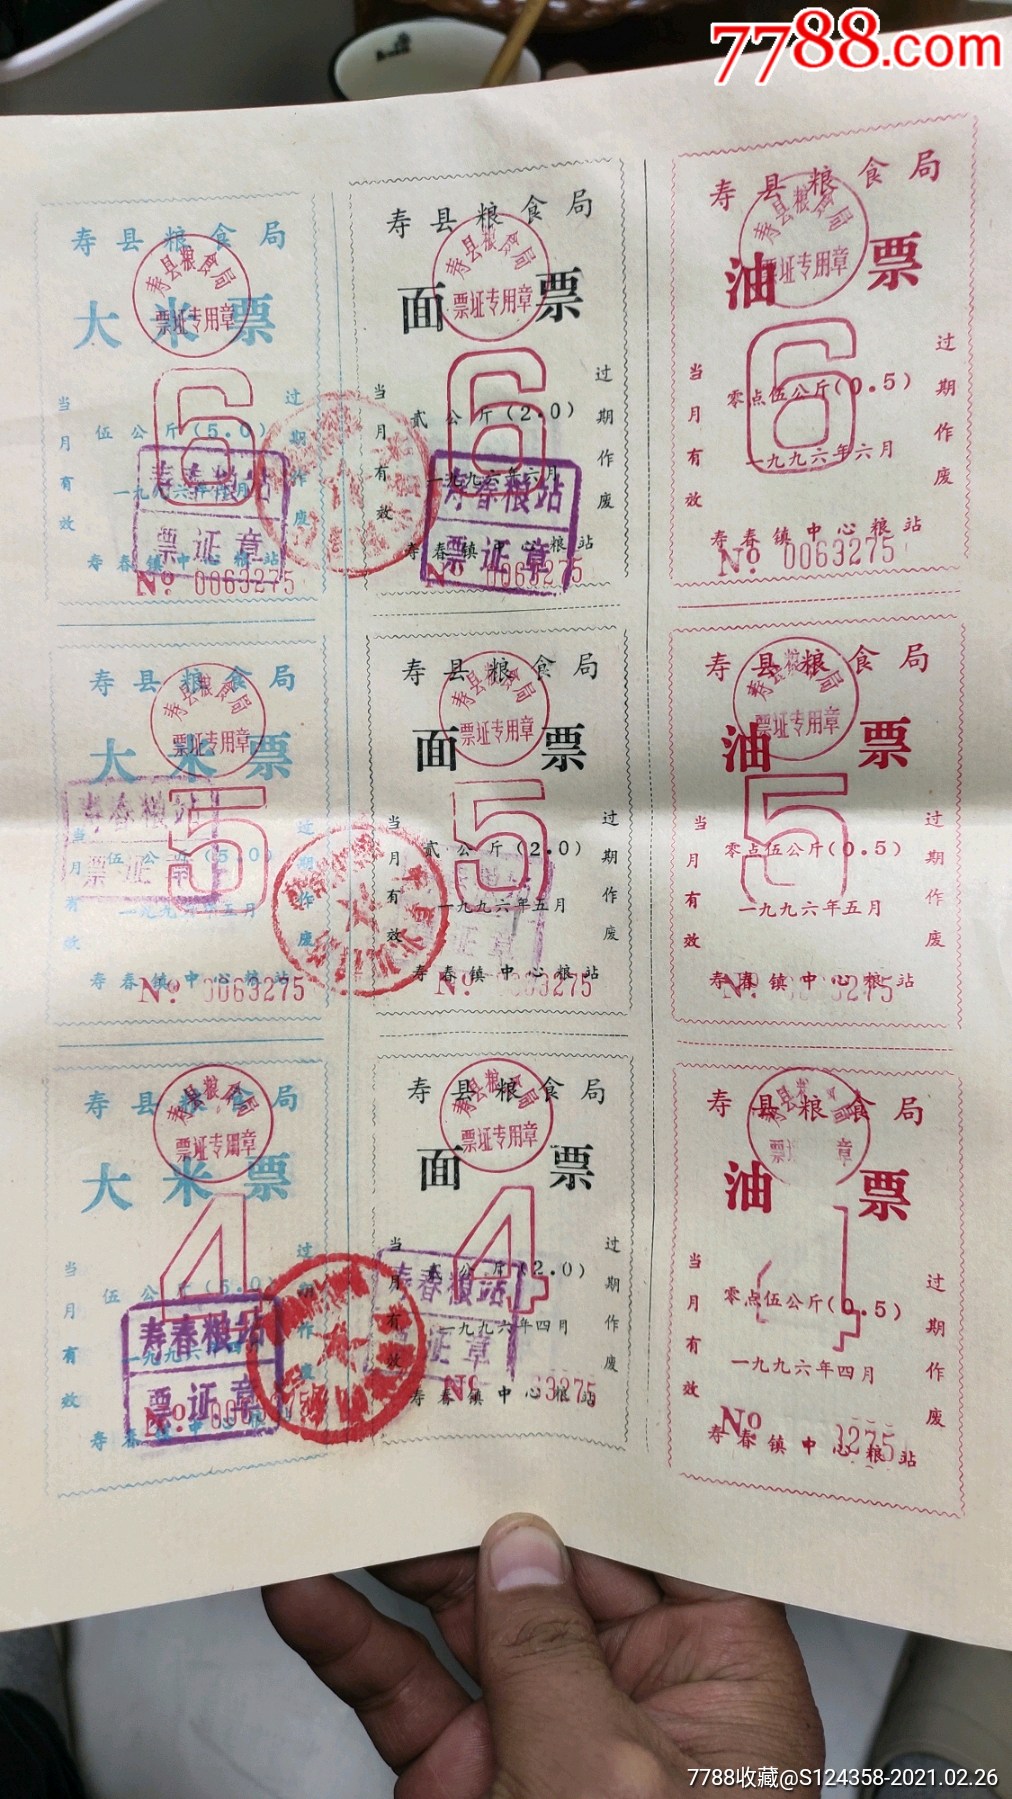 7788.com
寿县粮食局
大米票
寿县粮食局
票证专用章
6
当月有效
过期作废
伍公斤(5.0)
一九九六年六月
寿春粮站
票证章
寿春镇中心粮站
No 0063275
寿县粮食局
面票
寿县粮食局
票证专用章
6
当月有效
过期作废
贰公斤(2.0)
一九九六年六月
寿春粮站
票证章
寿春镇中心粮站
No 0063275
寿县粮食局
油票
寿县粮食局
票证专用章
6
当月有效
过期作废
零点伍公斤(0.5)
一九九六年六月
寿春镇中心粮站
No 0063275
寿县粮食局
大米票
寿县粮食局
票证专用章
5
当月有效
过期作废
伍公斤(5.0)
一九九六年五月
寿春粮站
票证章
寿春镇中心粮站
No 0063275
寿县粮食局
面票
寿县粮食局
票证专用章
5
当月有效
过期作废
贰公斤(2.0)
一九九六年五月
证章
寿春镇中心粮站
No 0063275
寿县粮食局
油票
寿县粮食局
票证专用章
5
当月有效
过期作废
零点伍公斤(0.5)
一九九六年五月
寿春镇中心粮站
No 3275
寿县粮食局
大米票
寿县粮食局
票证专用章
4
当月有效
过期作废
伍公斤(5.0)
一九九六年四月
寿春粮站
票证章
寿春镇中心粮站
No
寿县粮食局
面票
寿县粮食局
票证专用章
4
当月有效
过期作废
贰公斤(2.0)
一九九六年四月
寿春粮站
证章
寿春镇中心粮站
No 63275
寿县粮食局
油票
寿县粮食局
票证 章
4
当月有效
过期作废
零点伍公斤(0.5)
一九九六年四月
寿春镇中心粮站
No 3275
7788收藏@S124358-2021.02.26